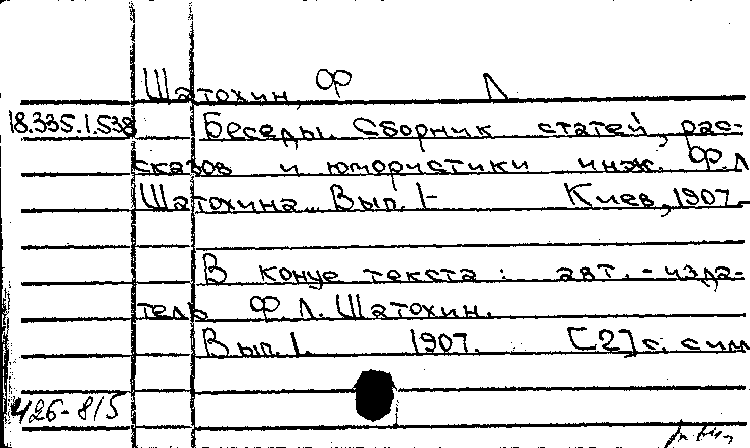 Шатохин, Ф Л
18.335.1.538 Беседы. Сборник статей, рас-
сказов и юмористики инж. Ф.Л
Шатохина. Вып. 1- Киев, 1907-
В конце текста: авт.-изда-
тель Ф.Л. Шатохин.
Вып. 1. 1907. [2] с. сим
426-815